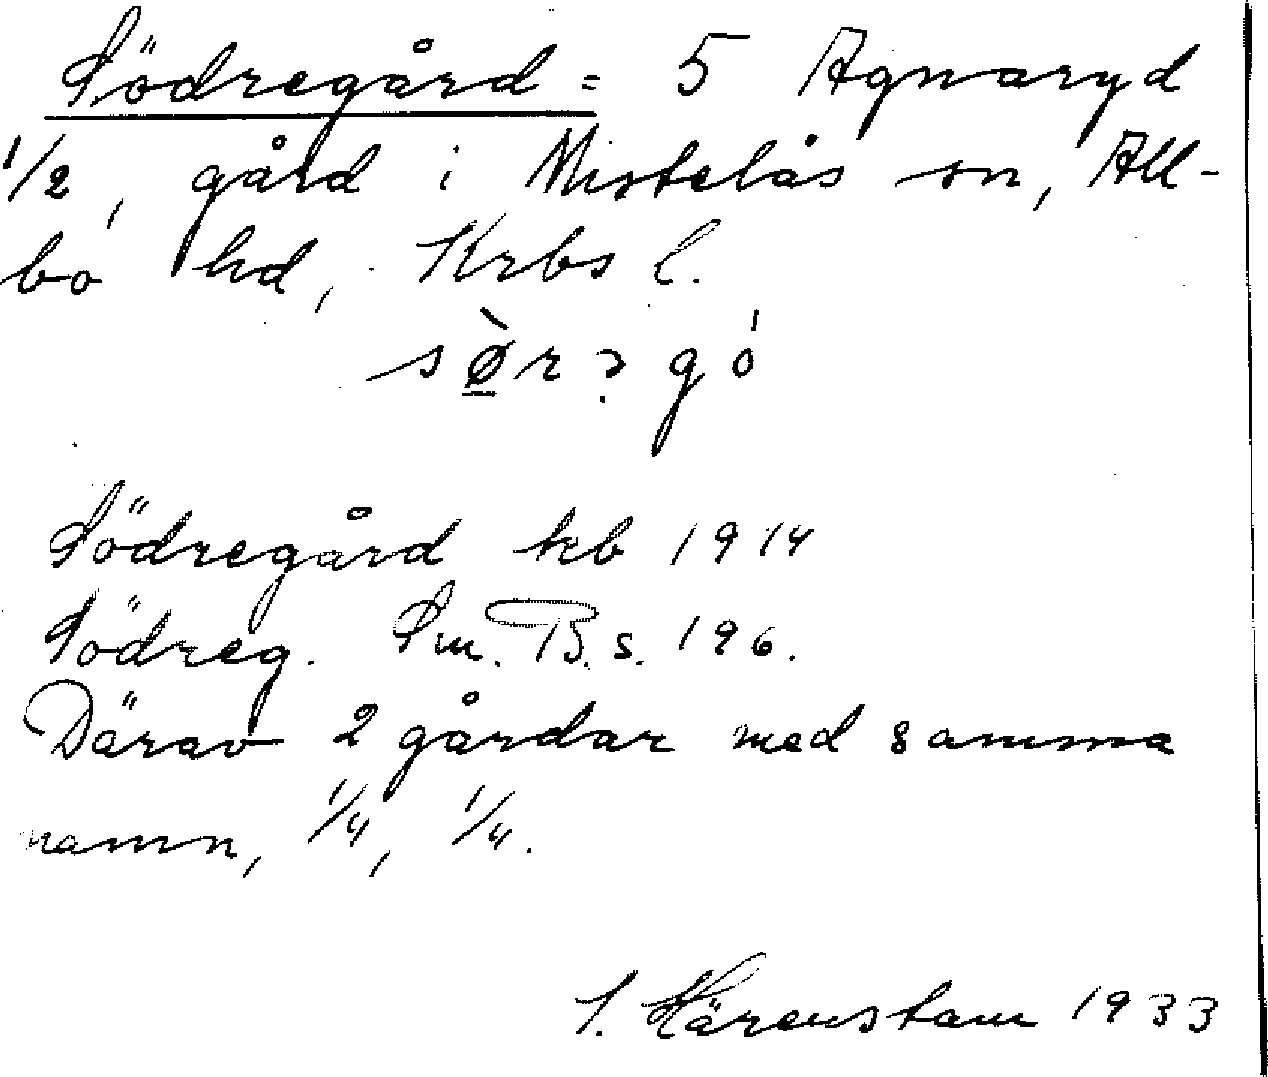 Södregård = 5 Agnaryd
1/2, gård i Mistelås sn, All-
bo hd, Krbs l.
Södregård kb 1914
Södreg. Sm. B. s. 196.
Därav 2 gårdar med samma
namn, 1/4, 1/4.
S. Härenstam 1933